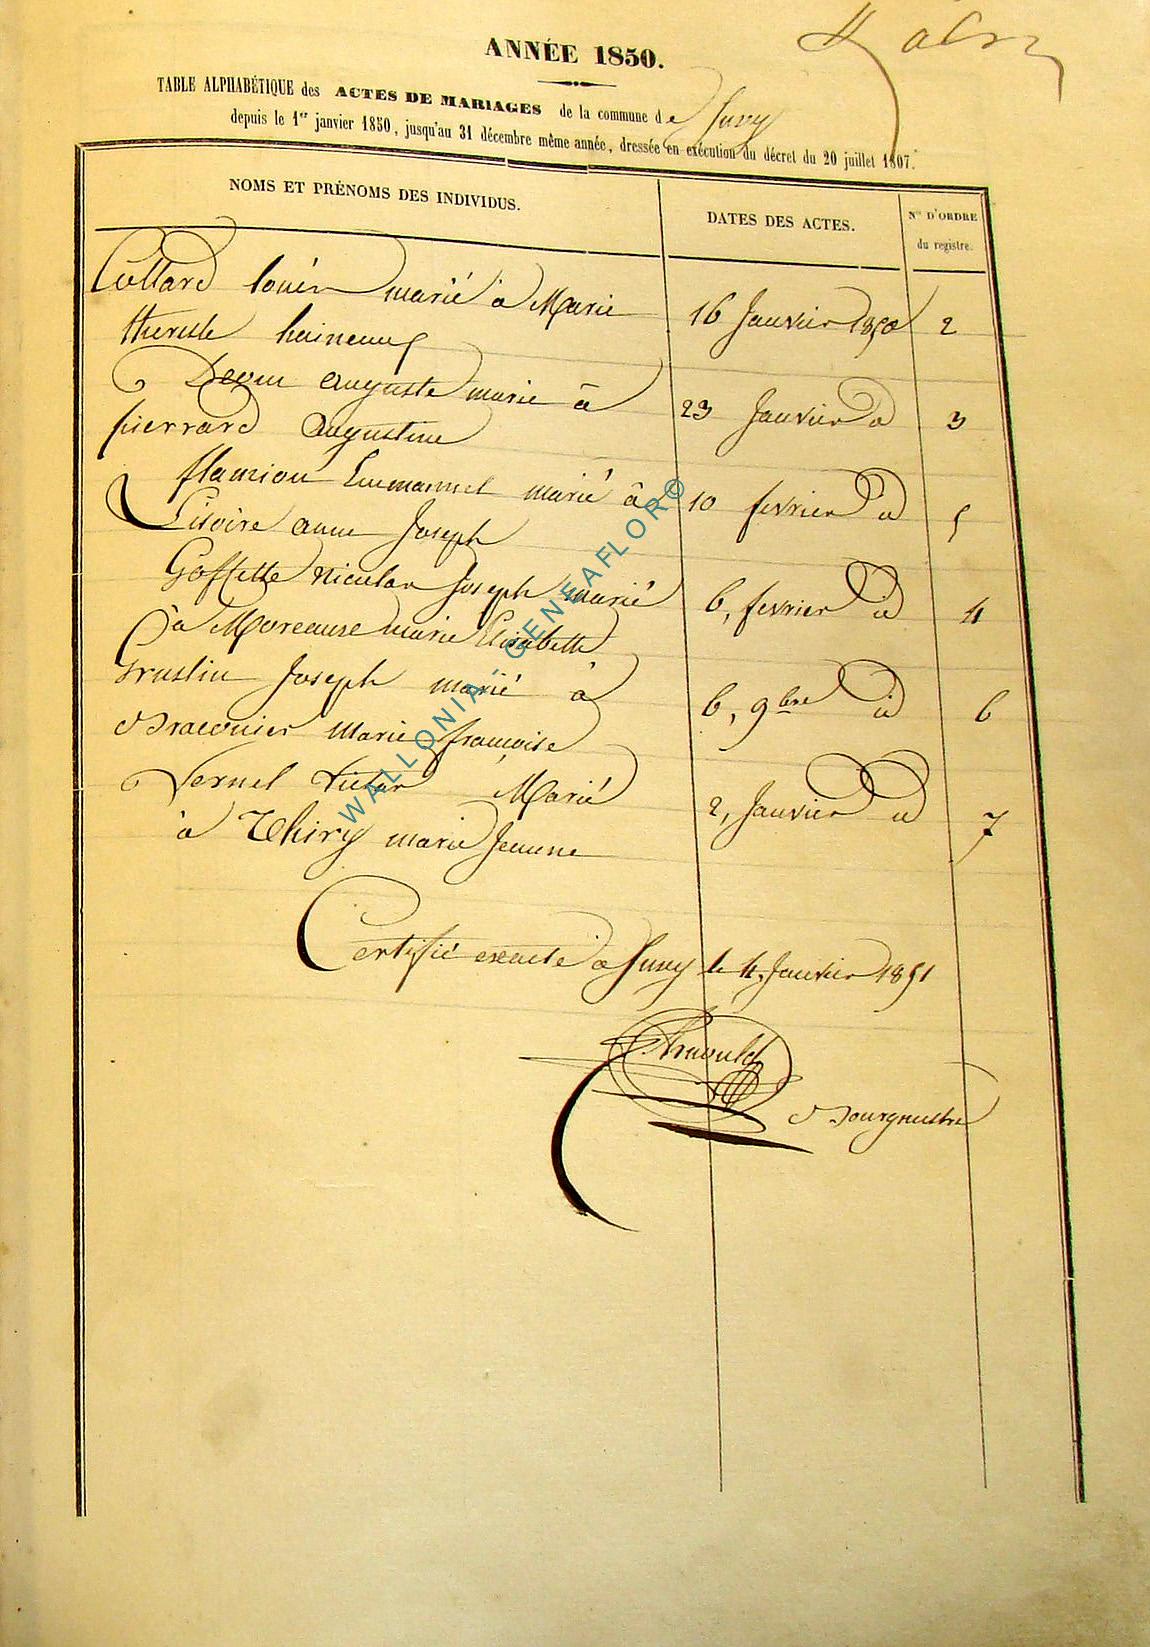 ANNÉE 1850.
TABLE ALPHABÉTIQUE des ACTES DE MARIAGES de la commune de Suny
depuis le 1er janvier 1850, jusqu'au 31 décembre même année, dressée en exécution du décret du 20 juillet 1807.
NOMS ET PRÉNOMS DES INDIVIDUS. DATES DES ACTES. Nos D'ORDRE
du registre.
Collard marié à Marie 16 Janvier 1850 2
therese haineaux
auguste marié à 23 Janvier id 3
pierrard Augustine
flamion Emmanuel marié à 10 fevrier id 5
Lisoire anne Joseph
Goffette Nicolas Joseph marié 6, fevrier id 4
à Moreaux marie Elisabette
Graslin Joseph marié à 6, 9bre id 6
Braconier Marie françoise
Lernel Victor Marié 2, Janvier id 7
à Thiry marie Jeanne
Certifié exacte à Suny le 4, Janvier 1851
Arnould
Bourgmestre
WALLONIA - GENEAFLOR©